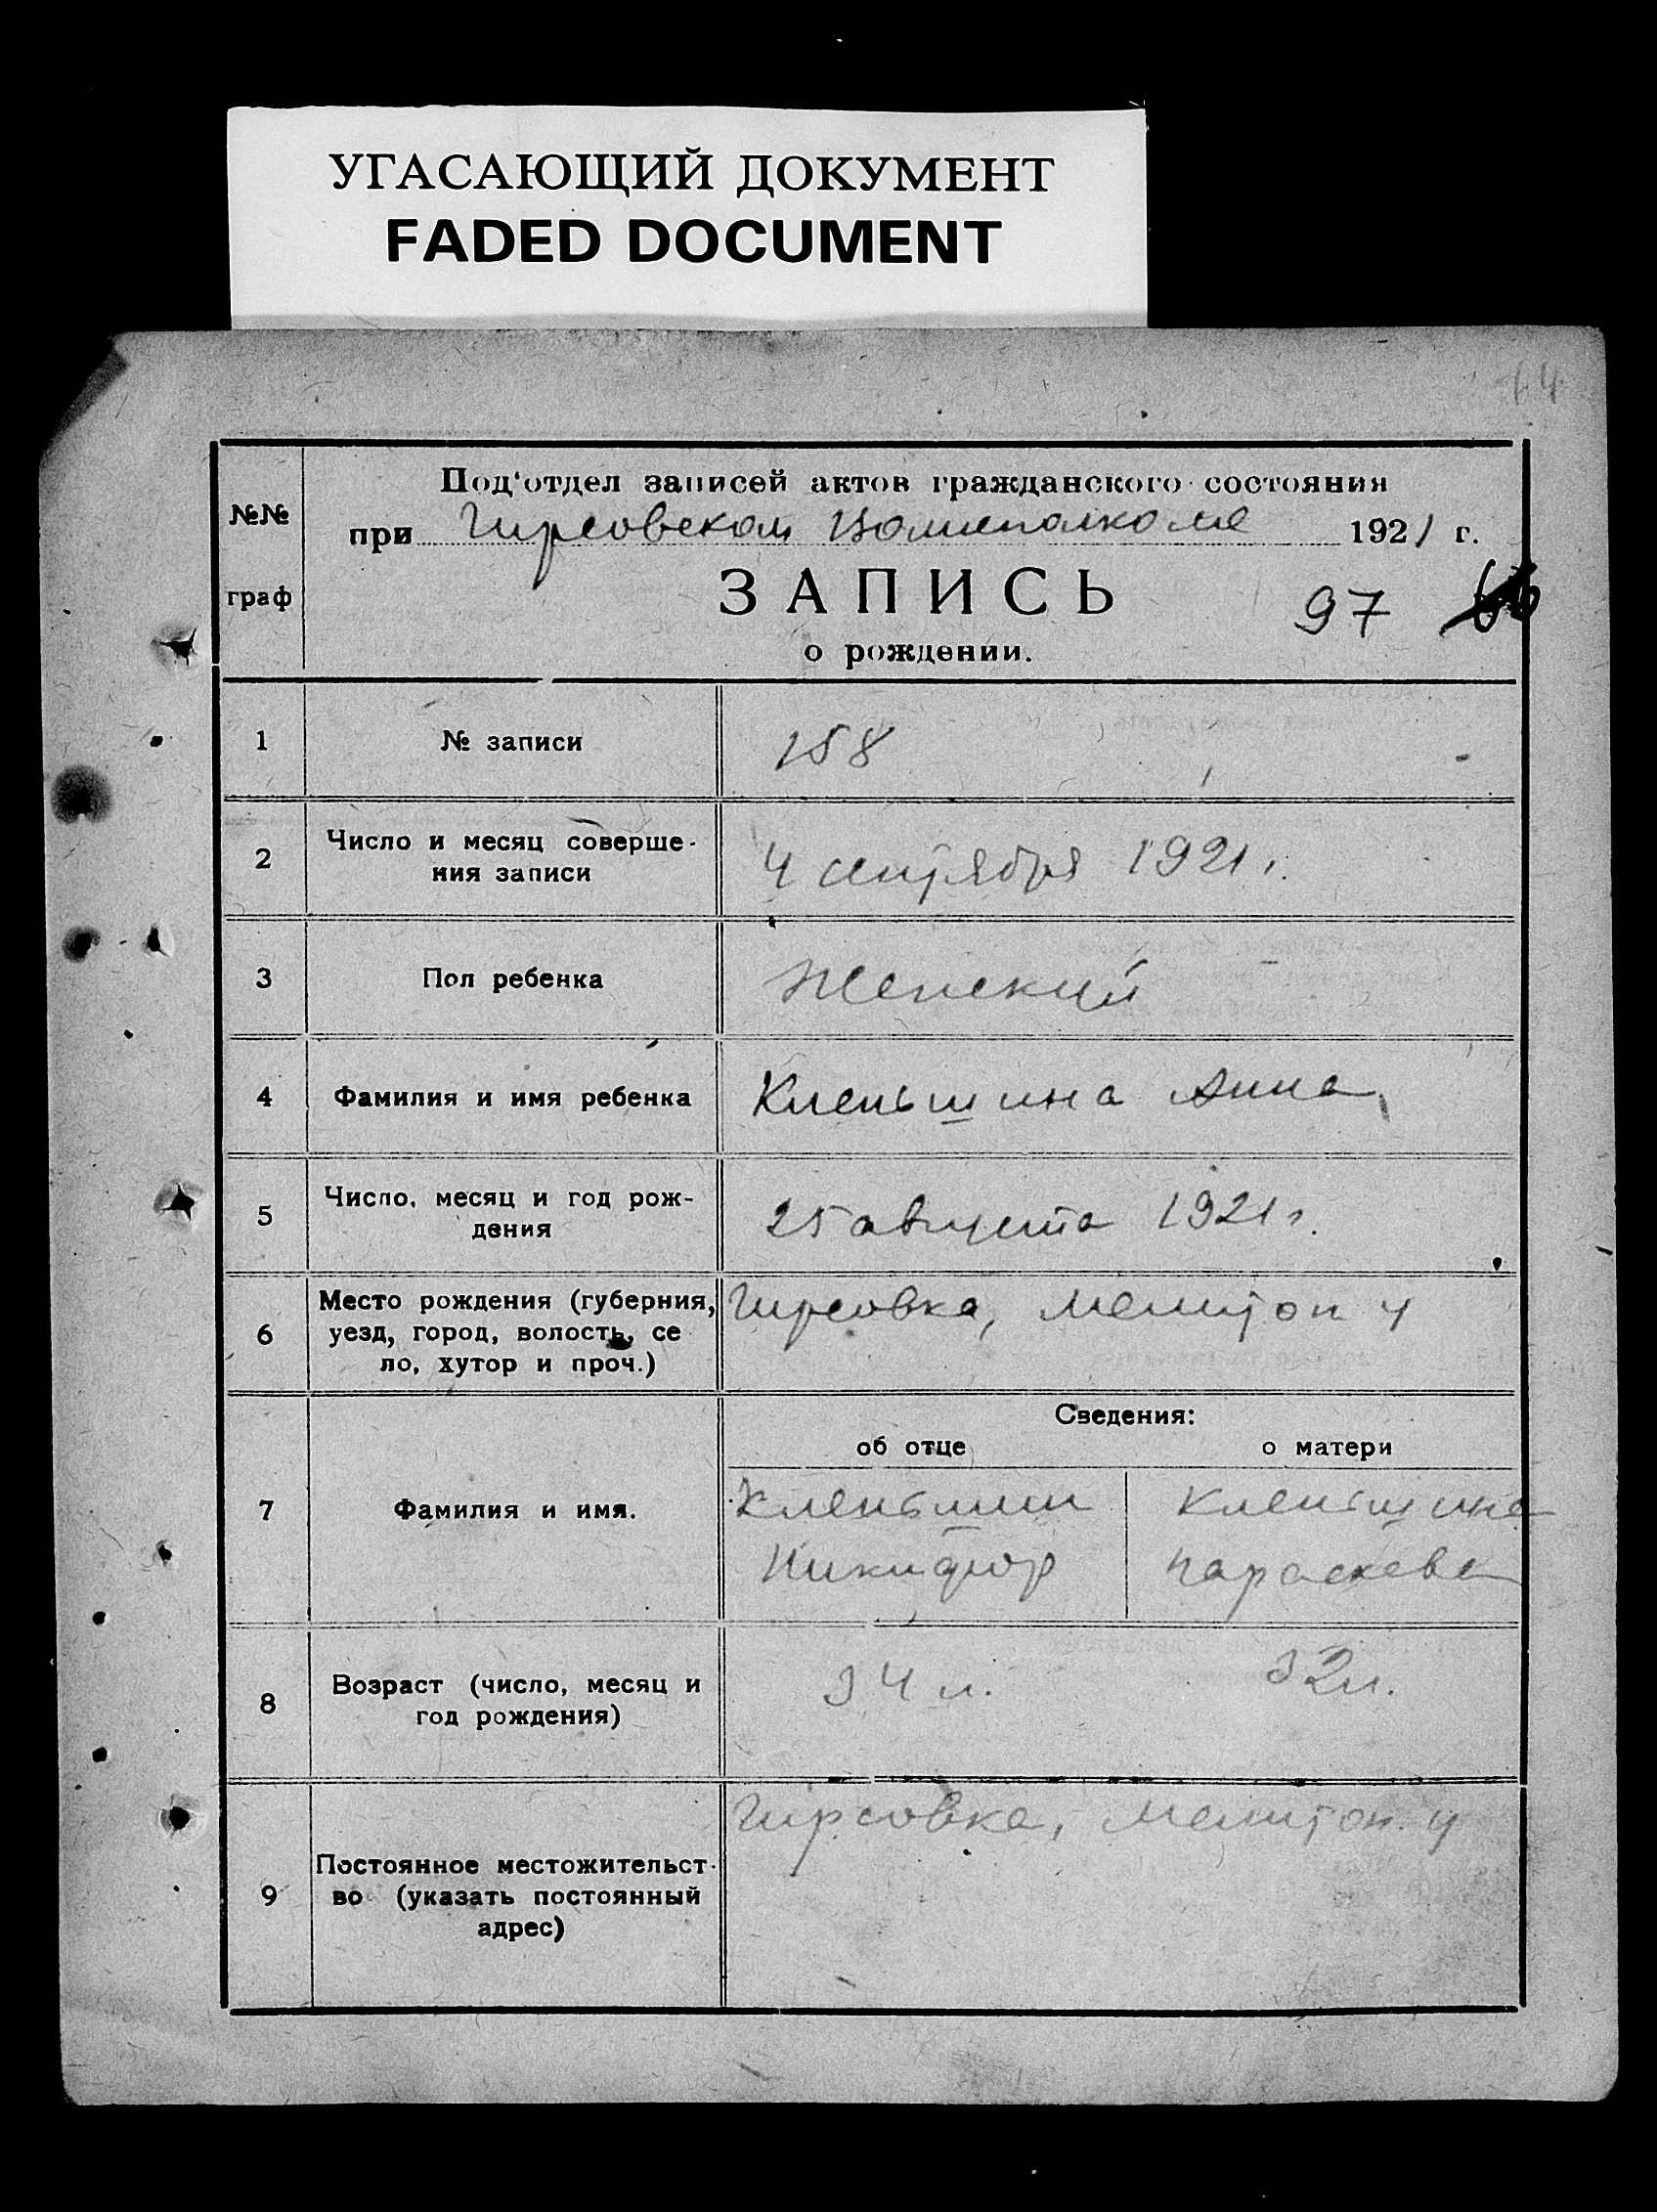 УГАСАЮЩИЙ ДОКУМЕНТ
FADED DOCUMENT
14
Под'отдел записей актов гражданского состояния
№№
при Гирсовском Волисполкоме 1921 г.
граф
ЗАПИСЬ
97
о рождении.
1 № записи 158
2 Число и месяц соверше-
ния записи
4 сентября 1921 г.
3 Пол ребенка Женский
4 Фамилия и имя ребенка Кленьшина Анна
5 Число, месяц и год рож-
дения
25 августа 1921 г.
6 Место рождения (губерния,
уезд, город, волость, се
ло, хутор и проч.)
Гирсовка, Мелитоп у
Сведения:
об отце о матери
7 Фамилия и имя.
Кленьшин Кленьшина
Никифор Параскева
8 Возраст (число, месяц и
год рождения)
34 л. 32 л.
9 Постоянное местожительст-
во (указать постоянный
адрес)
Гирсовка, Мелитоп. у